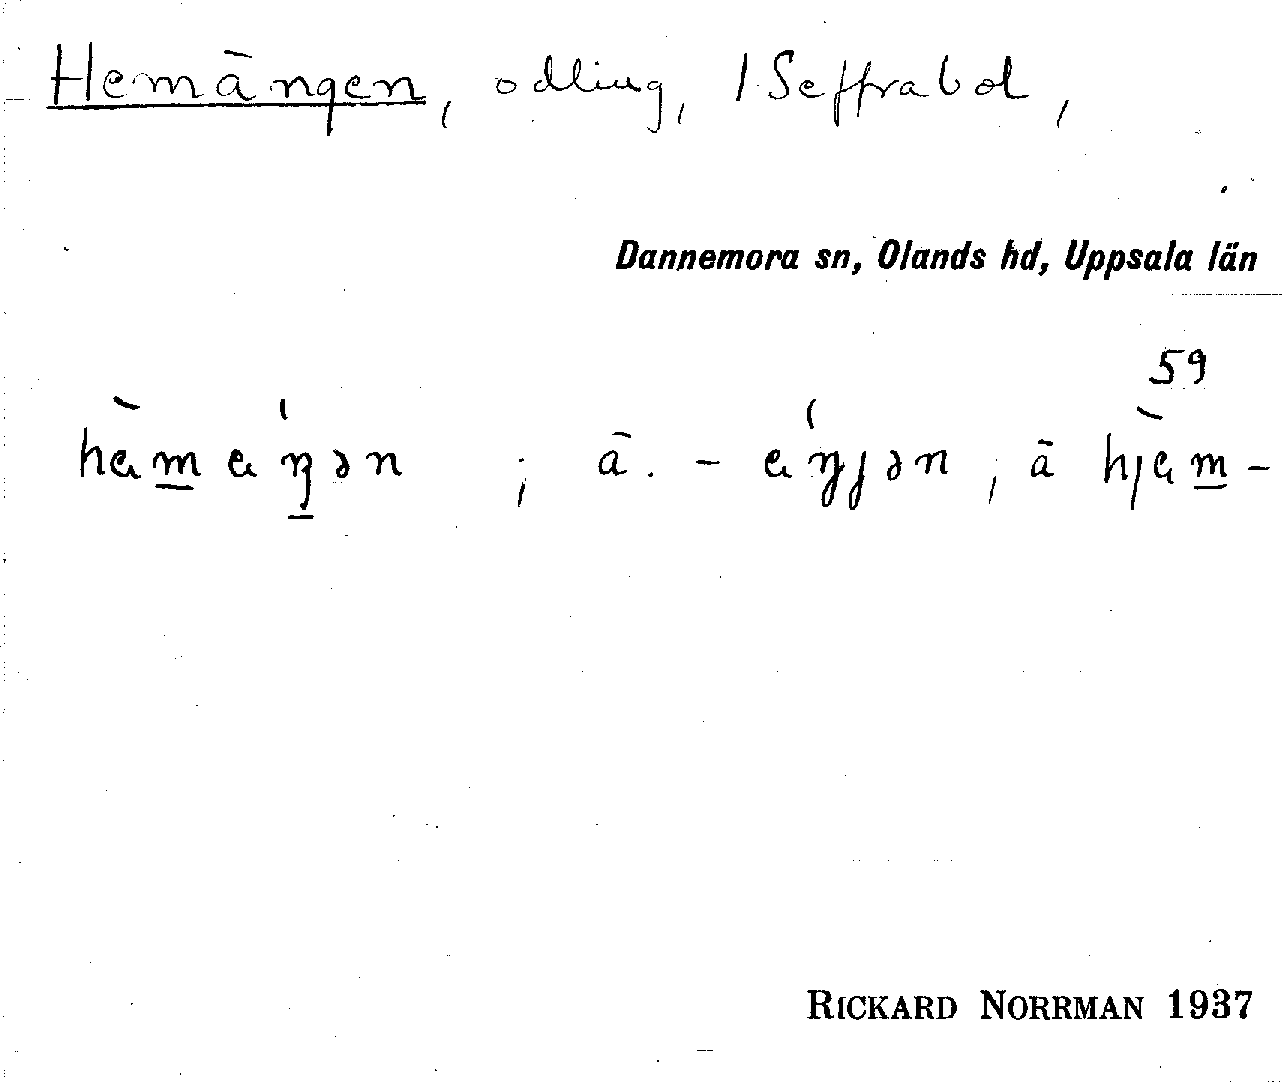 Hemängen, odling, 1 Seffrabol,
Dannemora sn, Olands hd, Uppsala län
59
hàmaŋ́ən ; ä. - aŋ́jən, ä hjàm-
RICKARD NORRMAN 1937